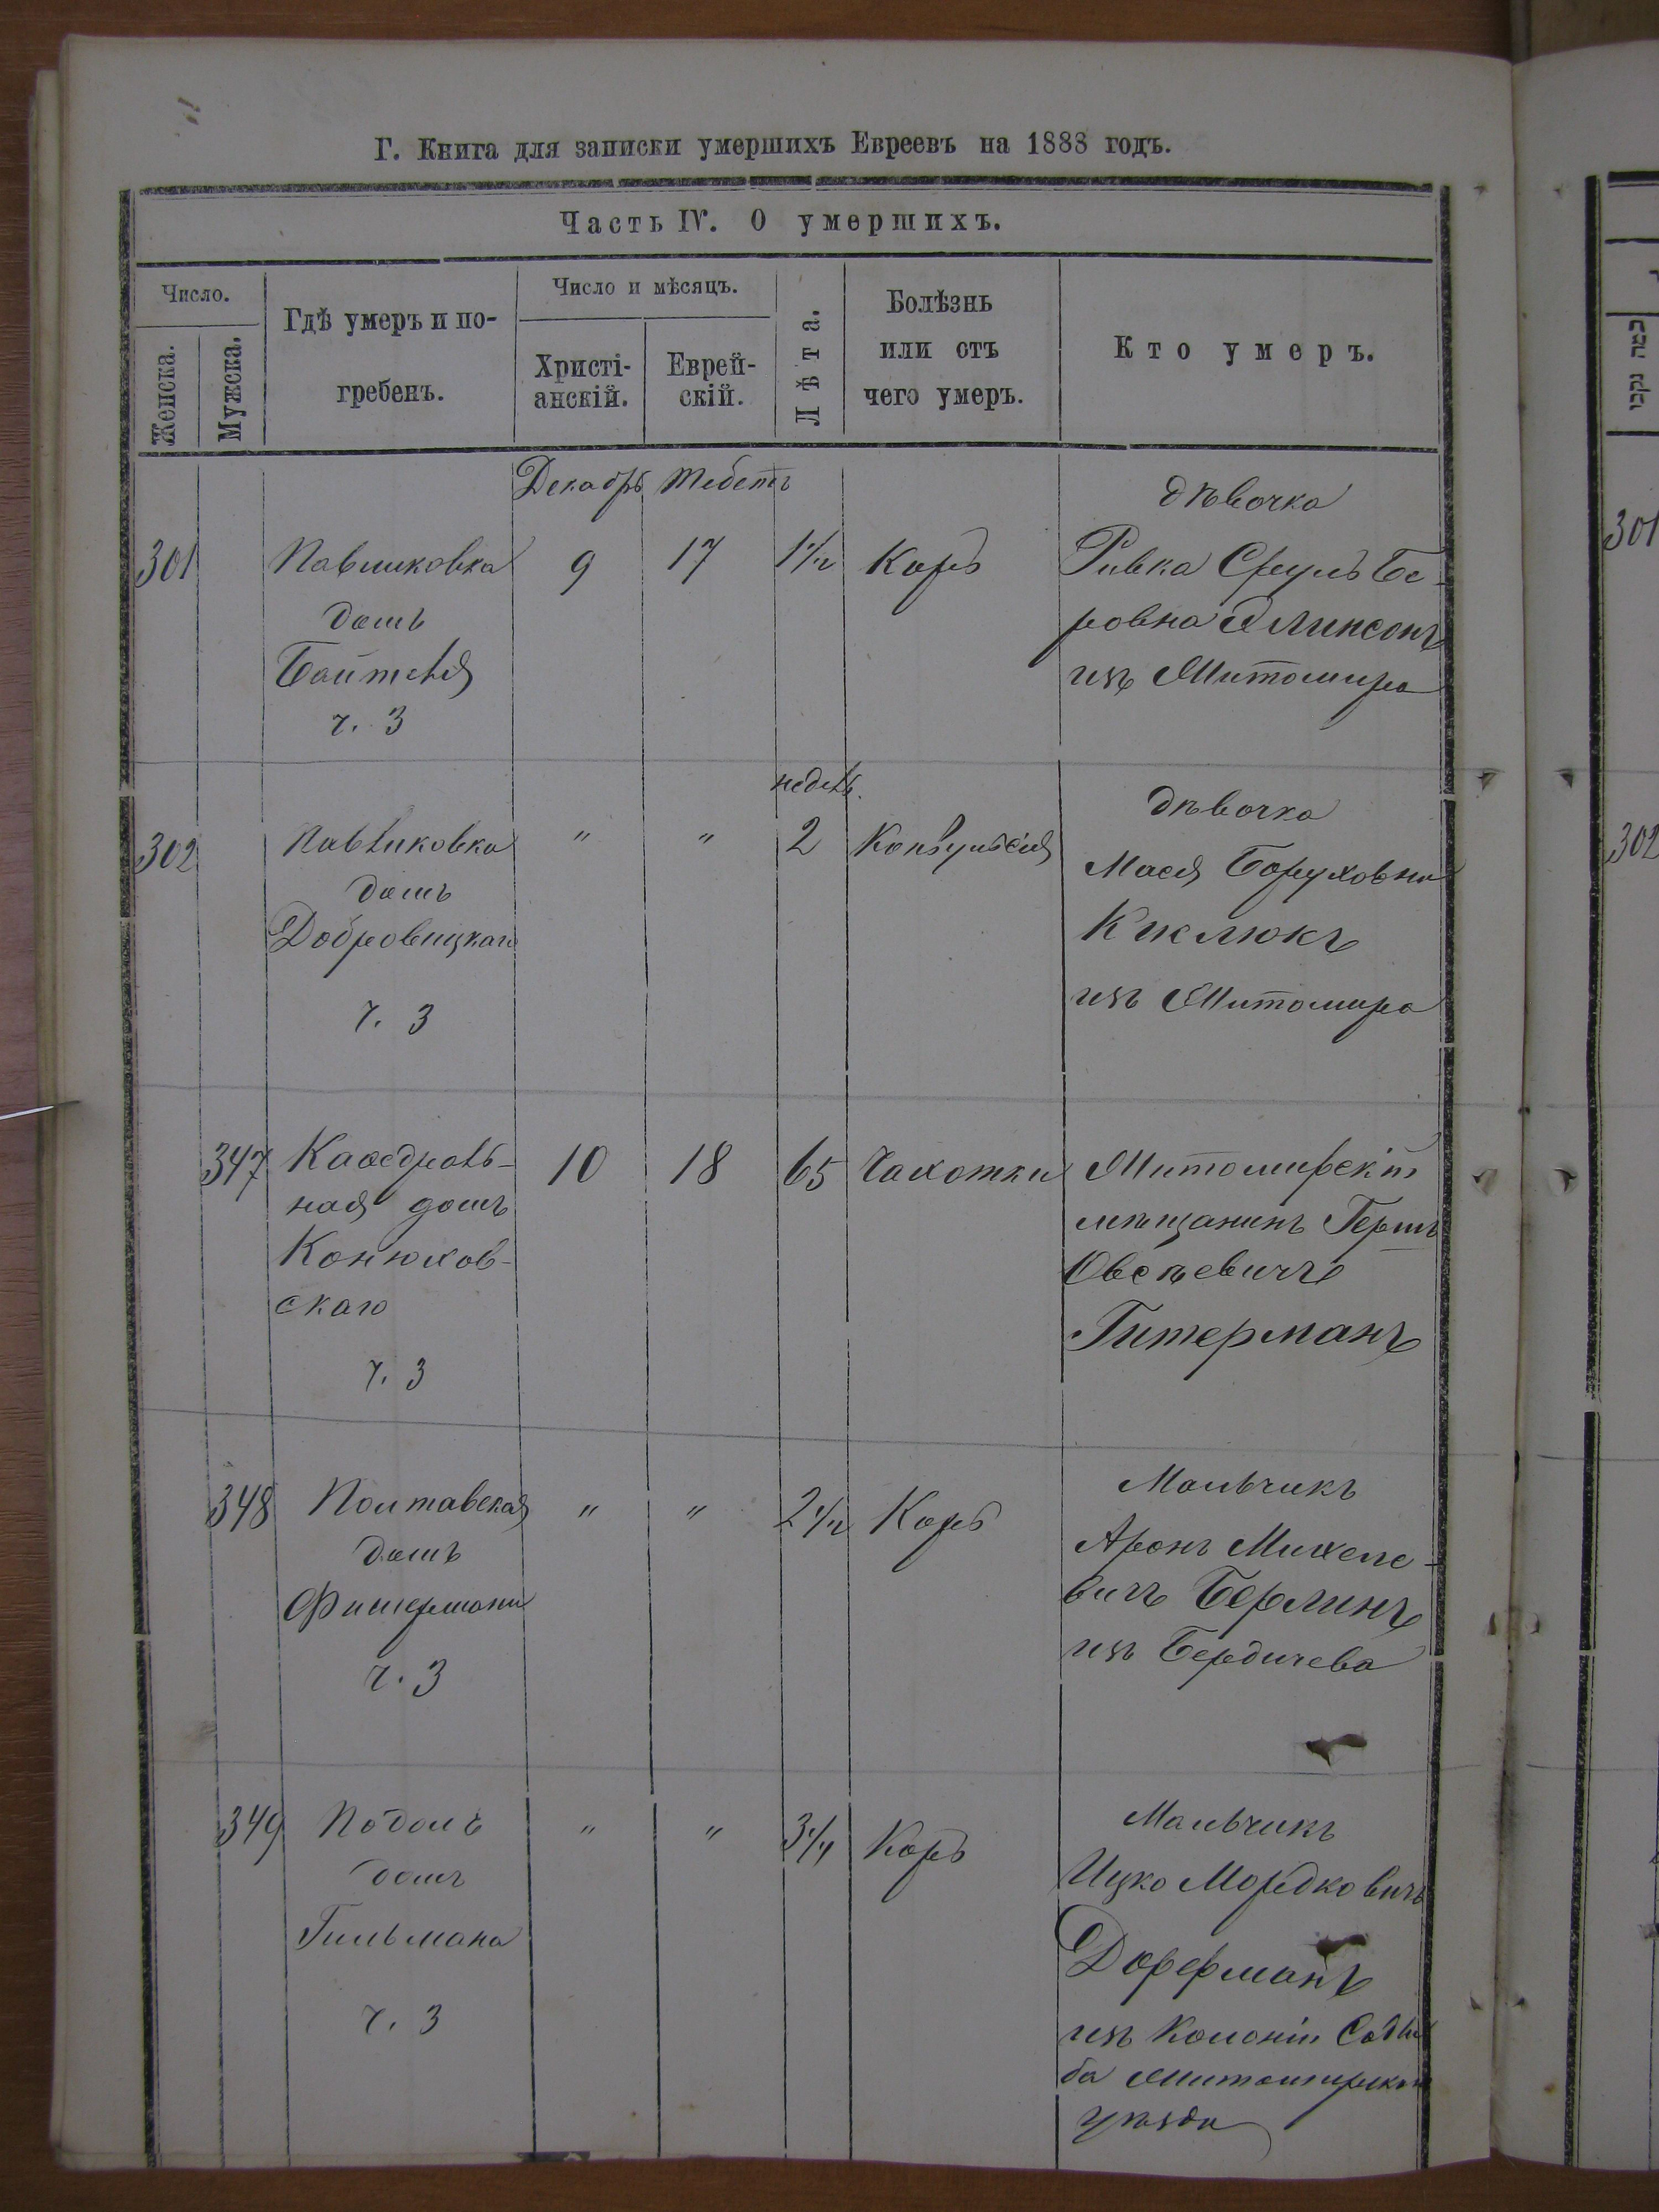 Г. Книга для записки умершихъ Евреевъ на 1888 годъ.
Часть IV. О умершихъ.
Число.
Женска.
Мужска.
Гдѣ умеръ и по-
гребенъ.
Число и мѣсяцъ.
Христі-
анскій.
Еврей-
скій.
Лѣта.
Болѣзнь
или отъ
чего умеръ.
Кто умеръ.
Декабрь Тебетъ
301
Павликовка
домъ
ч. 3
9
17
1½
Корь
дѣвочка
Ривка Сруль Бе-
ровна
изъ Житомира
302
Павликовка
домъ
Добровицкаго
ч. 3
"
"
недель
2
Конвульсія
дѣвочка
Мася Боруховна
Киклюкъ
изъ Житомира
347
Каѳедраль-
ная домъ
Конюхов-
скаго
ч. 3
10
18
65
Чахотки
Житомирскій
мѣщанинъ Гершъ
Овсѣевичъ
Гитерманъ
348
Полтавская
домъ
Фишермана
ч. 3
"
"
2½
Корь
Мальчикъ
Аронъ Михеле-
вичъ Берлинъ
изъ Бердичева
349
Подолъ
домъ
Гильмана
ч. 3
"
"
3/4
Корь
Мальчикъ
Ицко Мордковичъ
Дорфманъ
изъ Колоніи
ба Житомирскаго
уѣзда
301
302